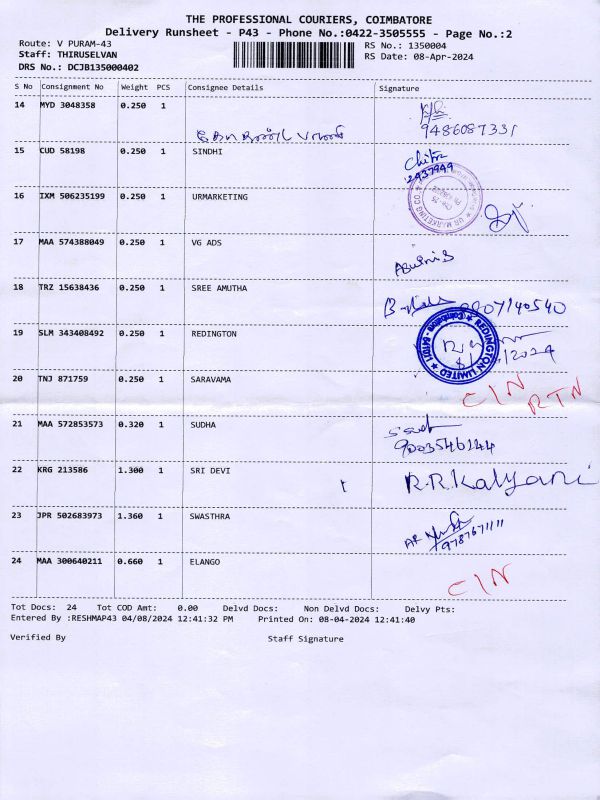 THE PROFESSIONAL COURIERS, COIMBATORE
Delivery Runsheet - P43 - Phone No.:0422-3505555 - Page No.:2
Route: V PURAM-43 RS No.: 1350004
Staff: THIRUSELVAN RS Date: 08-Apr-2024
DRS No.: DCJB135000402
S No Consignment No Weight PCS Consignee Details Signature
14 MYD 3048358 0.250 1
9486087331
15 CUD 58198 0.250 1 SINDHI Chitra
16 IXM 506235199 0.250 1 URMARKETING
17 MAA 574388049 0.250 1 VG ADS
18 TRZ 15638436 0.250 1 SREE AMUTHA
19 SLM 343408492 0.250 1 REDINGTON
REDINGTON LIMITED ★ Coimbatore - 641011 ★
20 TNJ 871759 0.250 1 SARAVAMA CIN RTN
21 MAA 572853573 0.320 1 SUDHA
9003546144
22 KRG 213586 1.300 1 SRI DEVI R.R.Kalyani
23 JPR 502683973 1.360 1 SWASTHRA
24 MAA 300640211 0.660 1 ELANGO CIN
Tot Docs: 24 Tot COD Amt: 0.00 Delvd Docs: Non Delvd Docs: Delvy Pts:
Entered By :RESHMAP43 04/08/2024 12:41:32 PM Printed On: 08-04-2024 12:41:40
Verified By Staff Signature